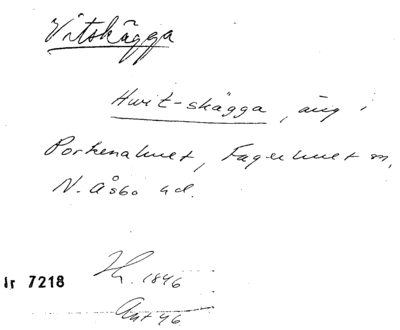 Vitskägga
Hwit-skägga, äng i
Porkenahuet, Fagerhuet m,
N. Åsbo hd.
Ir 7218
Th. 1846
Ant 46